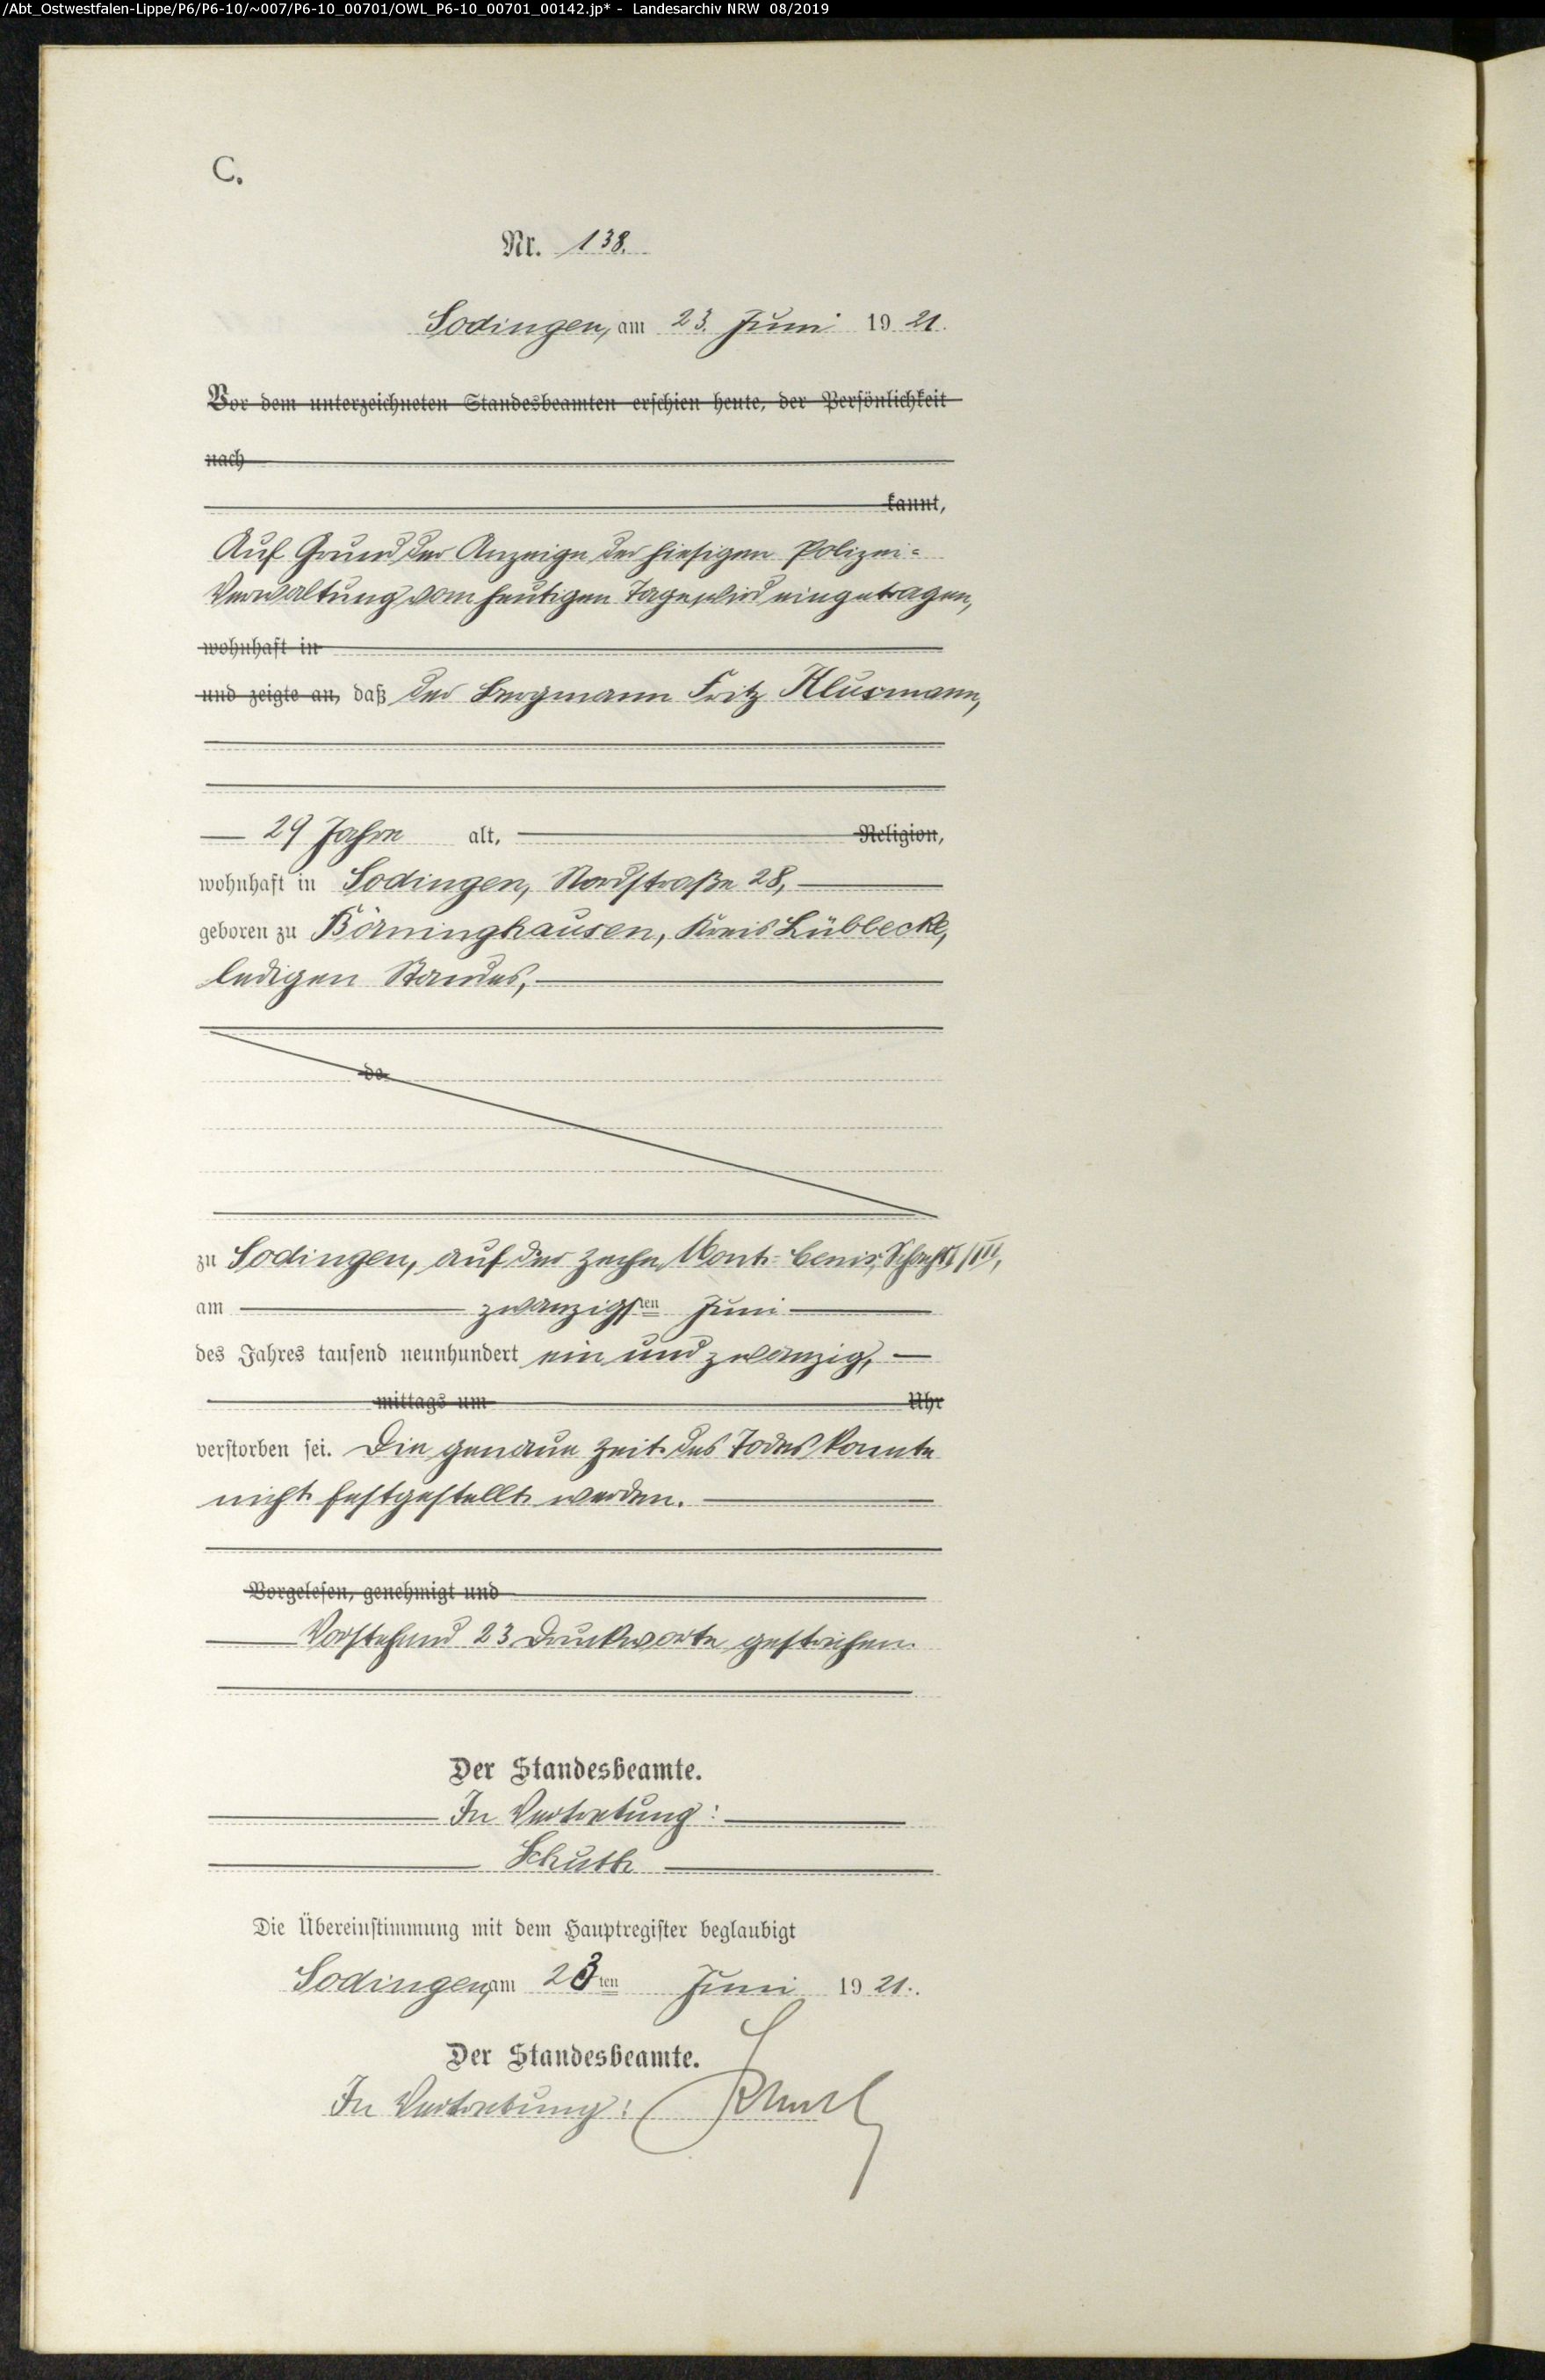 /Abt_Ostwestfalen-Lippe/P6/P6-10/~007/P6-10_00701/OWL_P6-10_00701_00142.jp* - Landesarchiv NRW 08/2019
C.
Nr. 138.
Sodingen, am 23. Juni 19 21.
Vor dem unterzeichneten Standesbeamten erschien heute, der Persönlichkeit
nach
kannt,
Auf Grund der Anzeige der hiesigen Polizei-
Verwaltung vom heutigen Tage wird eingetragen,
wohnhaft in
und zeigte an, daß der Bergmann Fritz Klusmann,
29 Jahre alt, Religion,
wohnhaft in Sodingen, Nordstraße 28,
geboren zu Börninghausen, Kreis Lübbecke,
ledigen Standes,
de
zu Sodingen, auf der Zeche Mont-Cenis, Schacht I/III,
am zwanzigsten Juni
des Jahres tausend neunhundert ein und zwanzig,
mittags um Uhr
verstorben sei. Die genaue Zeit des Todes konnte
nicht festgestellt werden.
Vorgelesen, genehmigt und
Vorstehend 23 Druckworte gestrichen.
Der Standesbeamte.
In Vertretung:
Schuth
Die Übereinstimmung mit dem Hauptregister beglaubigt
Sodingen, am 23ten Juni 19 21.
Der Standesbeamte.
In Vertretung: Schuth